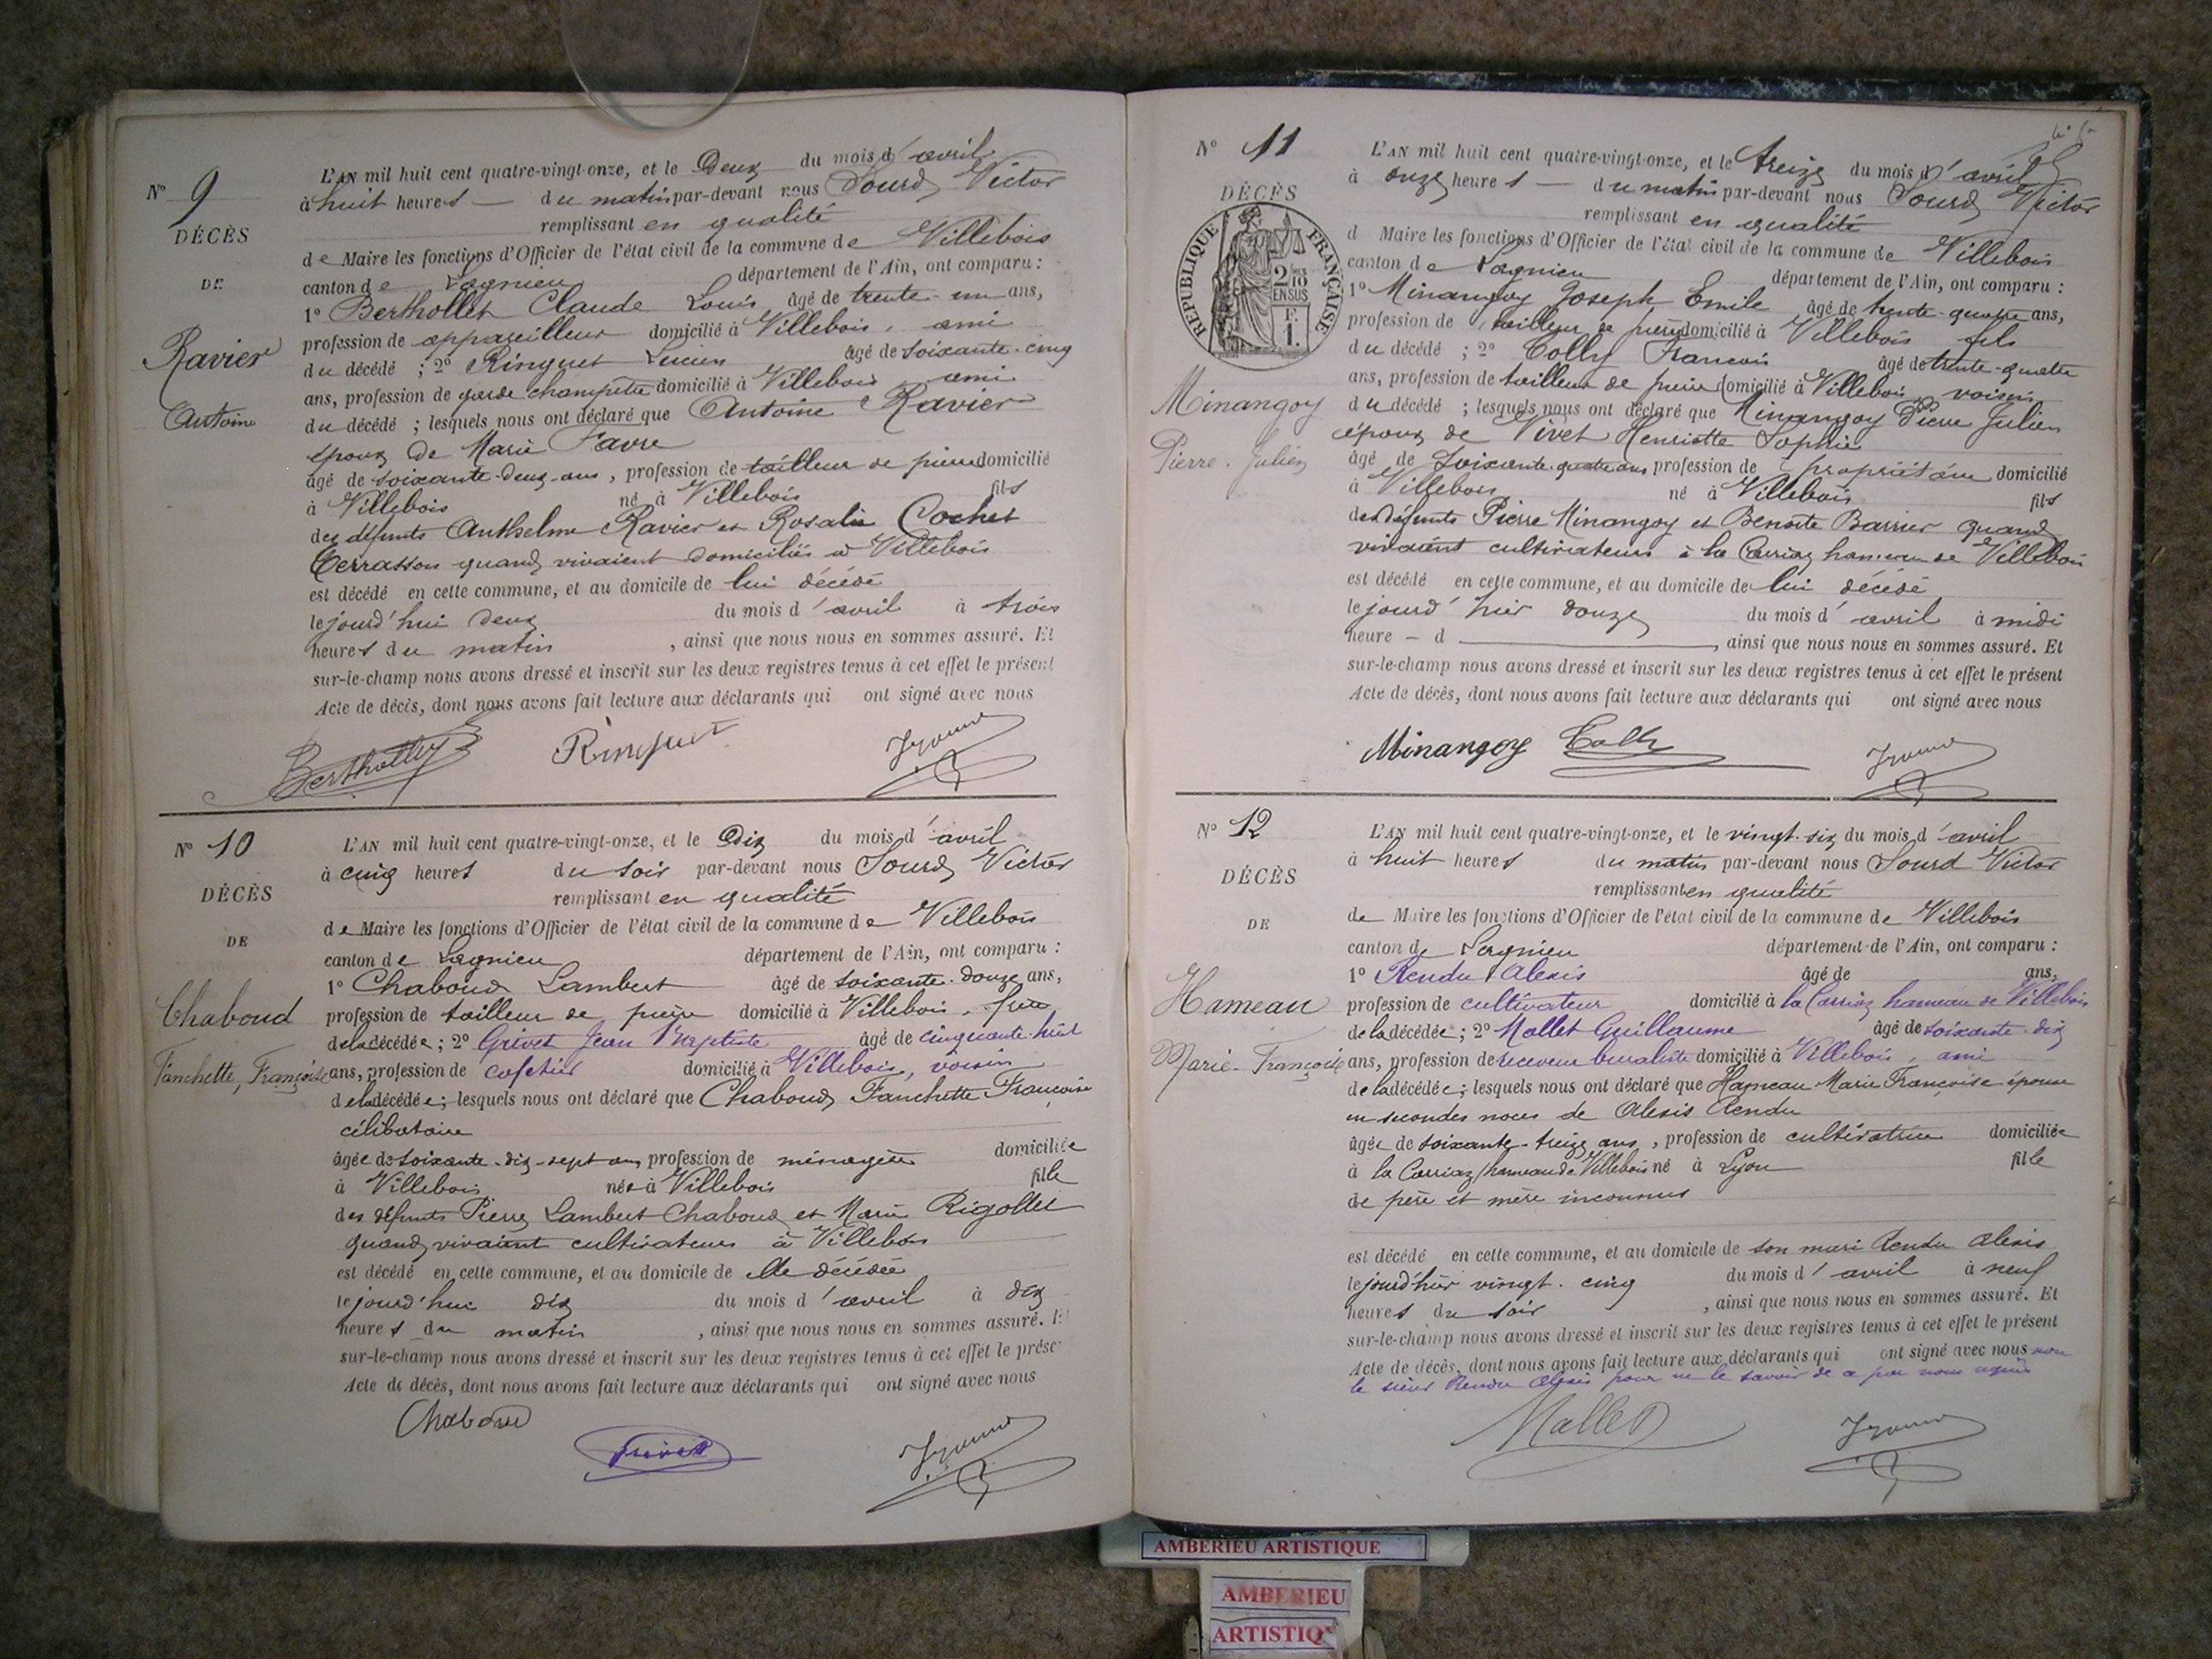 Nº 9
DÉCÈS
DE
Ravier
Antoine
L'AN mil huit cent quatre-vingt-onze, et le Deux du mois d'avril
à huit heures — du matin par-devant nous Sourd Victor
remplissant en qualité
de Maire les fonctions d'Officier de l'état civil de la commune de Villebois
canton de Lagnieu département de l'Ain, ont comparu :
1º Berthollet Claude Louis âgé de trente-un ans,
profession de appareilleur domicilié à Villebois, ami
du décédé ; 2º Ringuet Lucien âgé de soixante-cinq
ans, profession de garde champêtre domicilié à Villebois ami
du décédé ; lesquels nous ont déclaré que Antoine Ravier
époux de Marie Favre
âgé de soixante-deux-ans, profession de tailleur de pierre domicilié
à Villebois né à Villebois fils
des défunts Anthelme Ravier et Rosalie Cochet
Terrasson quand vivaient domiciliés à Villebois
est décédé en cette commune, et au domicile de lui décédé
le jourd'hui deux du mois d'avril à trois
heures du matin , ainsi que nous nous en sommes assuré. Et
sur-le-champ nous avons dressé et inscrit sur les deux registres tenus à cet effet le présent
Acte de décès, dont nous avons fait lecture aux déclarants qui ont signé avec nous
Ringuet
Nº 10
DÉCÈS
DE
Chaboud
Fanchette, Françoise
L'AN mil huit cent quatre-vingt-onze, et le Dix du mois d'avril
à cinq heures du soir par-devant nous Sourd Victor
remplissant en qualité
de Maire les fonctions d'Officier de l'état civil de la commune de Villebois
canton de Lagnieu département de l'Ain, ont comparu :
1º Chaboud Lambert âgé de soixante-douze ans,
profession de tailleur de pierre domicilié à Villebois, frère
de la décédée ; 2º Grivet Jean Baptiste âgé de cinquante-huit
ans, profession de cafetier domicilié à Villebois, voisin
de la décédée ; lesquels nous ont déclaré que Chaboud Fanchette Françoise
célibataire
âgée de soixante-dix-sept ans profession de ménagère domiciliée
à Villebois née à Villebois fille
des défunts Pierre Lambert Chaboud et Marie Rigollet
quand vivaient cultivateurs à Villebois
est décédé en cette commune, et au domicile de elle décédée
le jourd'hui dix du mois d'avril à dix
heures du matin , ainsi que nous nous en sommes assuré. Et
sur-le-champ nous avons dressé et inscrit sur les deux registres tenus à cet effet le prése
Acte de décès, dont nous avons fait lecture aux déclarants qui ont signé avec nous
Chaboud
Grivet
Nº 11
DÉCÈS
RÉPUBLIQUE FRANÇAISE
2/10
EN SUS
F.
1.
Minangoy
Pierre-Julien
L'AN mil huit cent quatre-vingt-onze, et le treize du mois d'avril
à onze heures — du matin par-devant nous Sourd Victor
remplissant en qualité
d Maire les fonctions d'Officier de l'état civil de la commune de Villebois
canton de Lagnieu département de l'Ain, ont comparu :
1º Minangoy Joseph Emile âgé de trente-quatre ans,
profession de tailleur de pierre domicilié à Villebois fils
du décédé ; 2º Colly François âgé de trente-quatre
ans, profession de tailleur de pierre domicilié à Villebois, voisin
du décédé ; lesquels nous ont déclaré que Minangoy Pierre Julien
époux de Vivet Henriette Sophie
âgé de soixante-quatre ans profession de propriétaire domicilié
à Villebois né à Villebois fils
des défunts Pierre Minangoy et Benoîte Barrier quand
vivaient cultivateurs à la Carriaz hameau de Villebois
est décédé en cette commune, et au domicile de lui décédé
le jourd'hier douze du mois d'avril à midi
heure — d — , ainsi que nous nous en sommes assuré. Et
sur-le-champ nous avons dressé et inscrit sur les deux registres tenus à cet effet le présent
Acte de décès, dont nous avons fait lecture aux déclarants qui ont signé avec nous
Minangoy Colly
Nº 12
DÉCÈS
DE
Hameau
Marie-Françoise
L'AN mil huit cent quatre-vingt-onze, et le vingt-six du mois d'avril
à huit heures du matin par-devant nous Sourd Victor
remplissant en qualité
de Maire les fonctions d'Officier de l'état civil de la commune de Villebois
canton de Lagnieu département de l'Ain, ont comparu :
1º Rendu Alexis âgé de ans,
profession de cultivateur domicilié à la Carriaz hameau de Villebois
de la décédée ; 2º Mallet Guillaume âgé de soixante-dix
ans, profession de receveur buraliste domicilié à Villebois, ami
de la décédée ; lesquels nous ont déclaré que Hameau Marie Françoise épouse
en secondes noces de Alexis Rendu
âgée de soixante-treize ans, profession de cultivatrice domiciliée
à la Carriaz hameau de Villebois né à Lyon fille
de père et mère inconnus
est décédé en cette commune, et au domicile de son mari Rendu Alexis
le jourd'hier vingt-cinq du mois d'avril à neuf
heures du soir , ainsi que nous nous en sommes assuré. Et
sur-le-champ nous avons dressé et inscrit sur les deux registres tenus à cet effet le présent
Acte de décès, dont nous avons fait lecture aux déclarants qui ont signé avec nous non
le sieur Rendu Alexis pour ne le savoir de ce par nous requis
Mallet
AMBERIEU ARTISTIQUE
AMBERIEU
ARTISTIQU